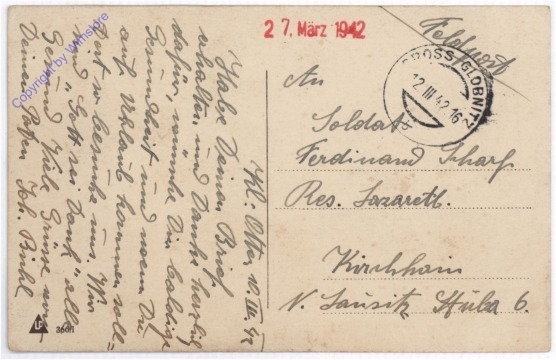 27. März 1942
Feldpost
GROSS GLOBNITZ
12.III.42.16
An
Soldat
Ferdinand Scharf
Res. Lazarett.
Kirchhain
N. Lausitz Stube 6.
Kl. Otten 10./III. 42
Habe Deinen Brief
erhalten und Danke herzlich
dafür, wünsche Dir baldige
Gesundheit und wenn Du
auf Urlaub kommen soll=
test so besuche uns. Wir
sind "Gott sei Dank" alle
Gesund Viele Grüße von
Deinen Paten Joh. Bichl
LP
3601
Copyright by Winshire